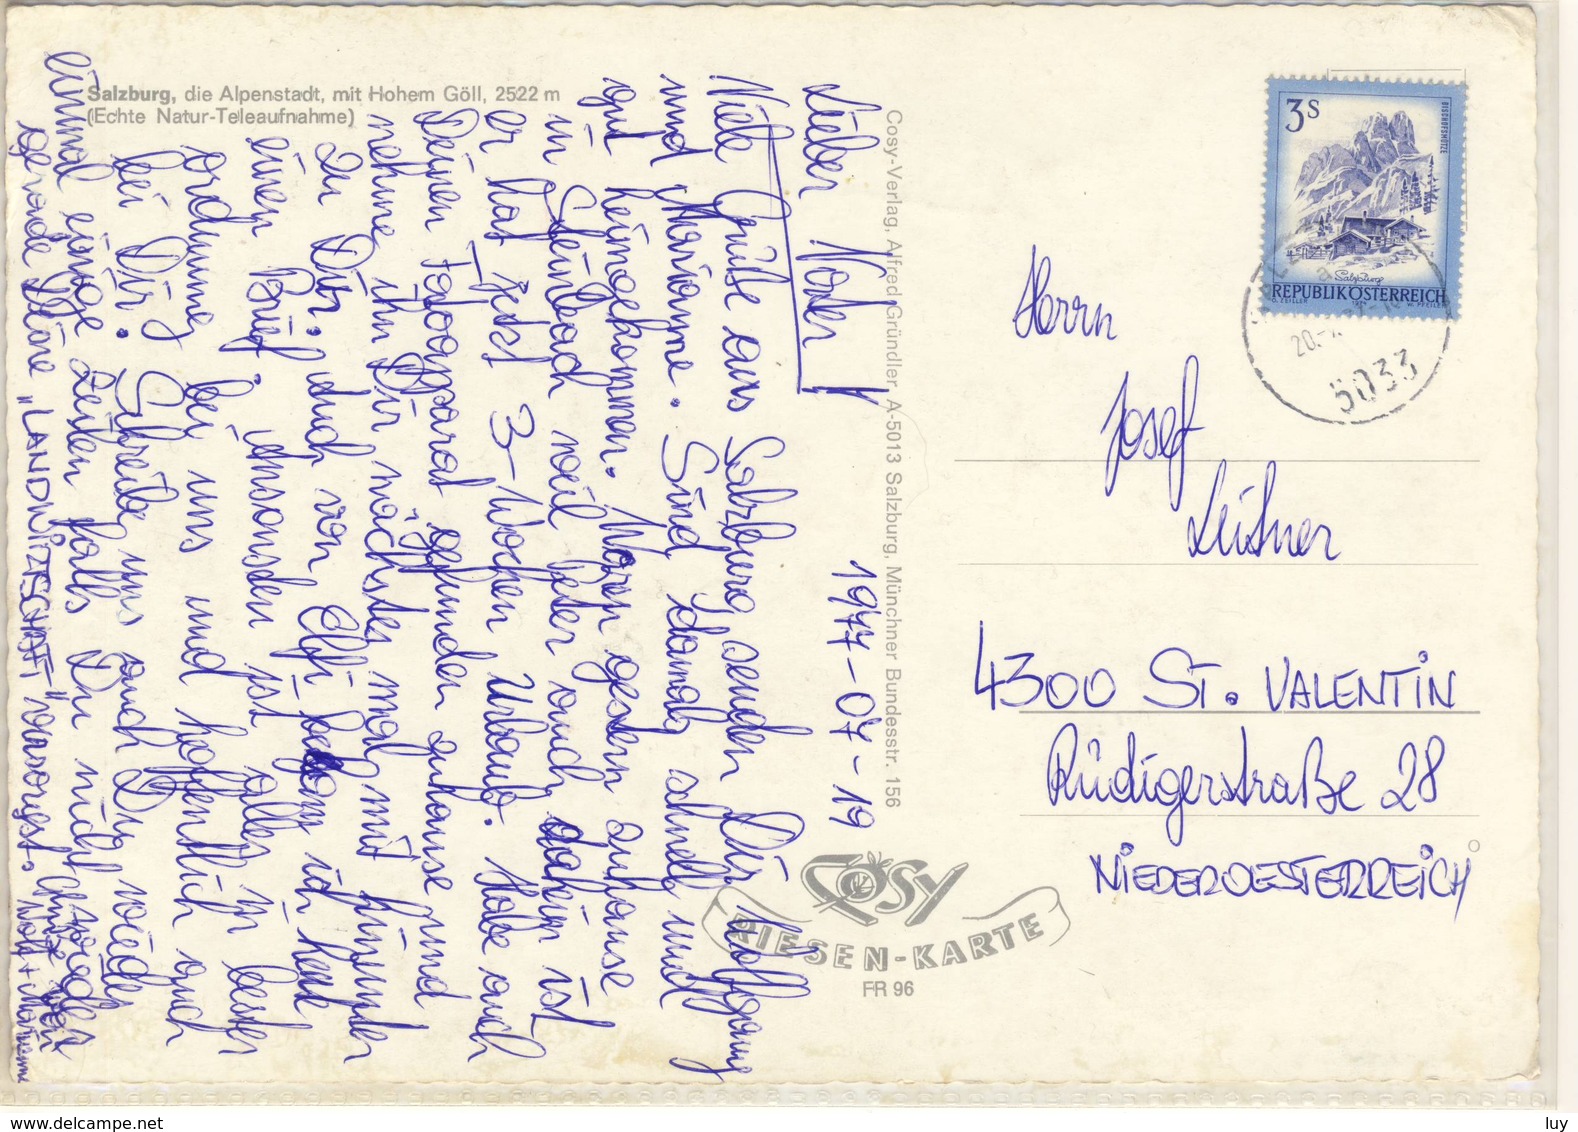 Salzburg, die Alpenstadt, mit Hohem Göll, 2522 m
(Echte Natur-Teleaufnahme)
Cosy-Verlag, Alfred Gründler A-5013 Salzburg, Münchner Bundesstr. 156
1977-07-19
Lieber Vater!
Viele Grüße aus Salzburg senden Dir Wolfgang
und Marianne. Sind damals schnell und
gut heimgekommen. Waren gestern zuhause
in Steinbach weil Peter auch daheim ist
er hat jetzt 3-Wochen Urlaub. Habe auch
Deinen Fotoapparat gefunden zuhause und
nehme ihn Dir nächstes mal mit hinunter
zu Dir. Auch von Elfi bekam ich heut
einen Brief. Ansonsten ist alles in bester
Ordnung bei uns und hoffentlich auch
bei Dir. Schreibe uns auch Du wieder
einmal einige Zeilen falls Du nicht gerade
gerade Deine „LANDWIRTSCHAFT" versorgst.
Wolf + Marianne
3 S
BISCHOFSMÜTZE
Salzburg
REPUBLIK ÖSTERREICH
O. ZEILLER 1974 W. PFEILER
5033
Herrn
Josef
Leitner
4300 ST. VALENTIN
Rüdigerstraße 28
NIEDEROESTERREICH
COSY
RIESEN-KARTE
FR 96
delcampe.net
luy